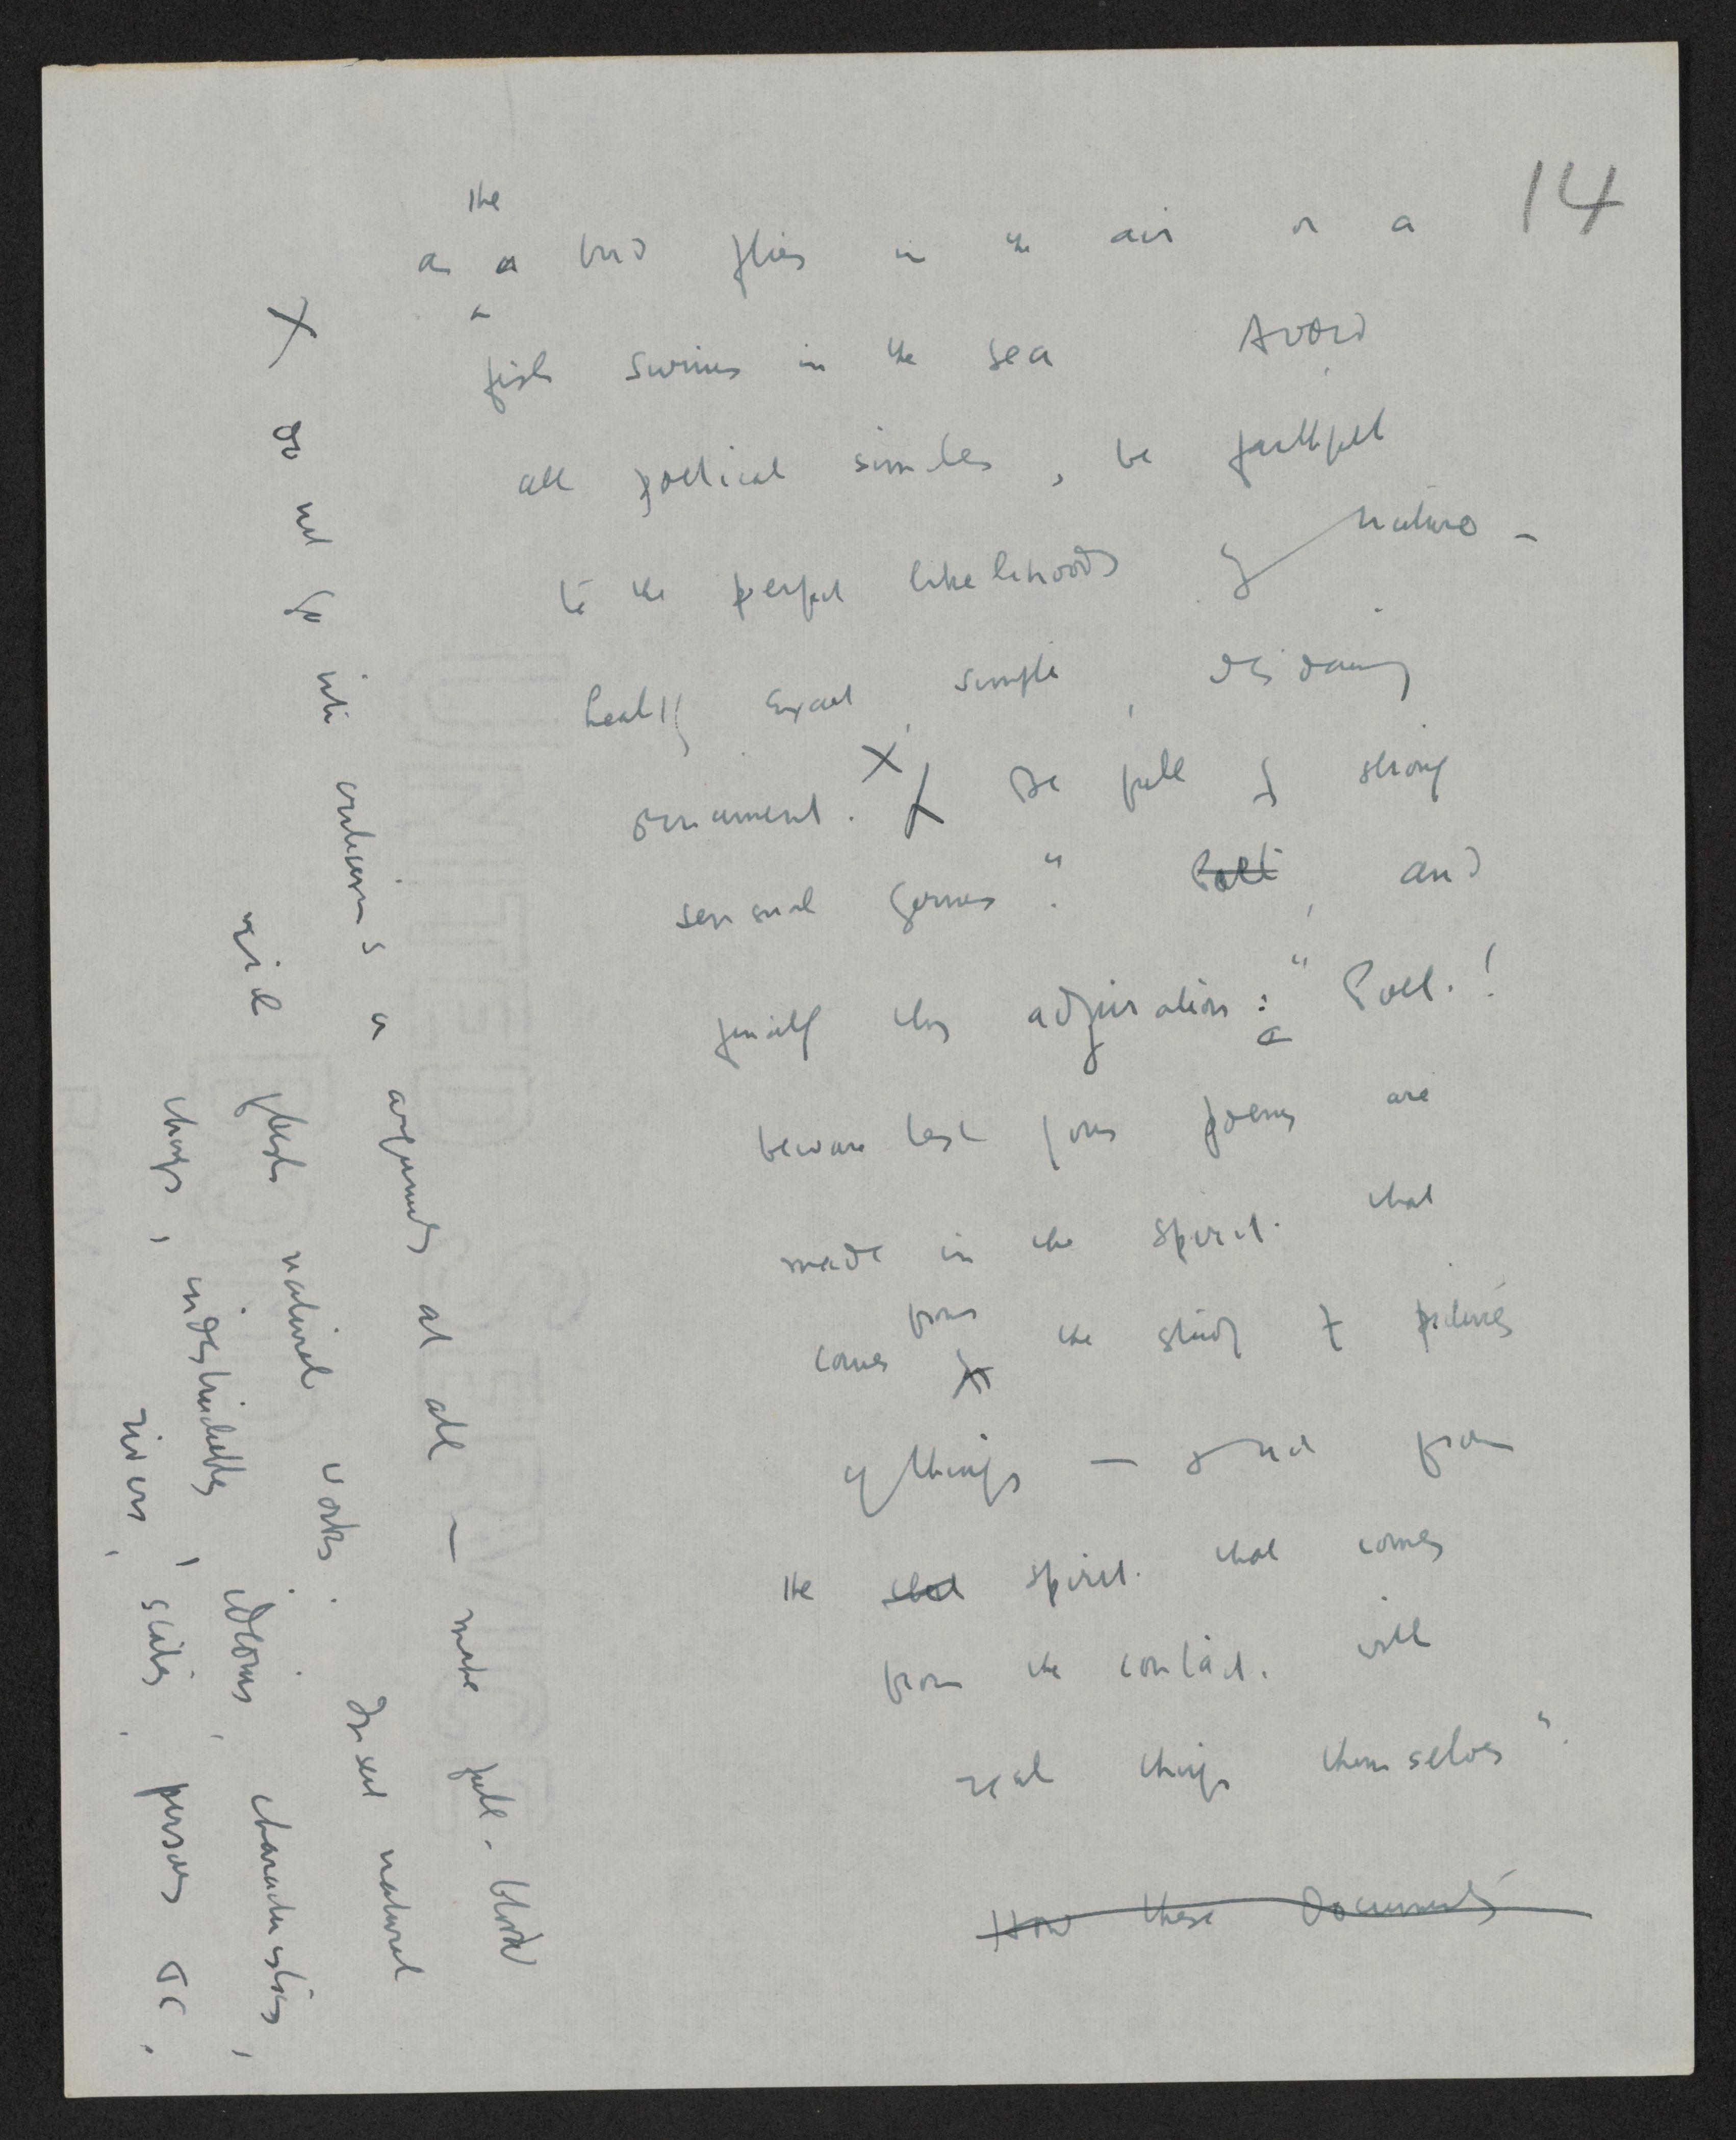 14
the
as a bird flies in the air or a
fish swims in the sea Avoid
all poetical similes, be faithful
to the perfect likelihoods of nature -
healthy, exact, simple, disdaining
ornament. X X Be full of strong
sensual germs". Poet, and
finally this adjuration: "a Poet!
beware lest your poems are
made in the spirit that
from
comes the study of pictures
of things — and from
the spirit that comes
from the contact with
real things themselves".
How these Documents
X Do not go into criticisms or arguments at all — make full-blooded
rich flush natural works. Insert natural
things, indestructibles, idioms, characteristics,
rivers, states, persons &c.
UNITED STATES
BOND
SERVICE